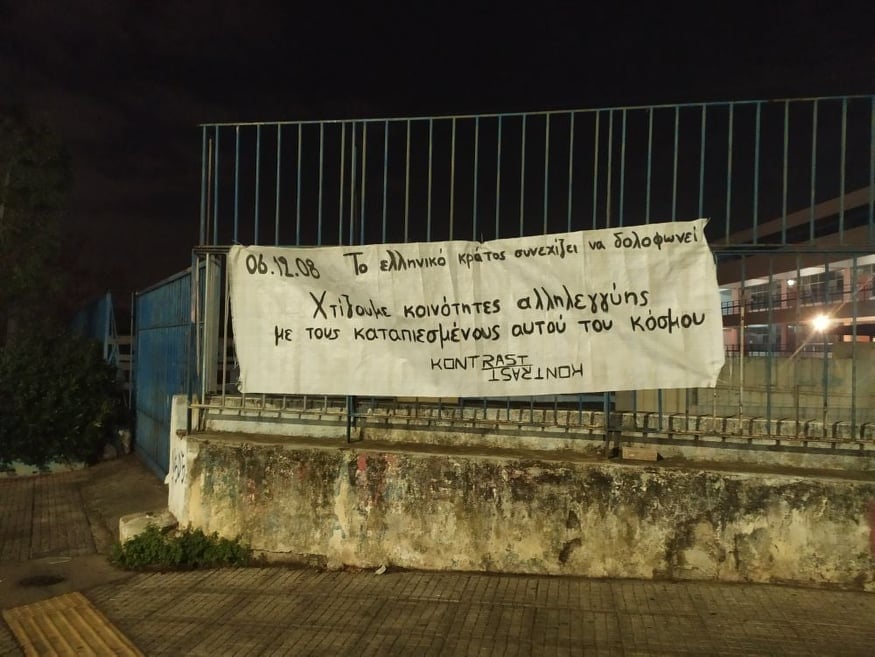 06.12.08 Το ελληνικό κράτος συνεχίζει να δολοφωνεί
Χτίζουμε κοινότητες αλληλεγγύης
με τους καταπιεσμένους αυτού του κόσμου
KONTRAST
KONTRAST